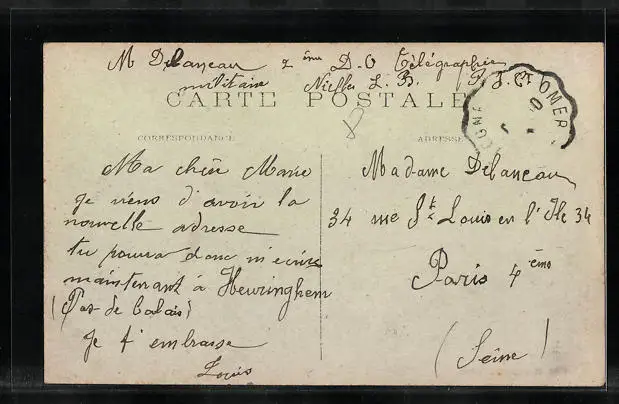 M Delaneau 2 ème D.O Télégraphie
militaire Nielles L. B. P. d. C.
CARTE POSTALE
CORRESPONDANCE
ADRESSE
Ma chère Marie
Je viens d'avoir la
nouvelle adresse
tu pourra donc m'ecrire
maintenant à Heuringhem
(Pas-de Calais)
Je t'embrasse
Louis
Madame Delaneau
34 rue St Louis en l'Ile 34
Paris 4 ème
(Seine)
OMER